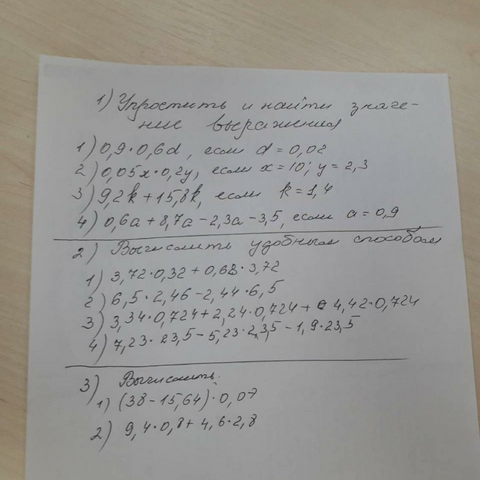 1) Упростить и найти значе-
ние выражения
1) 0,9·0,6d, если d=0,02
2) 0,05x·0,2y, если x=10; y=2,3
3) 9,2k+15,8k, если k=1,4
4) 0,6a+8,7a-2,3a-3,5, если a=0,9
2) Вычислить удобным способом
1) 3,72·0,32+0,68·3,72
2) 6,5·2,46-2,44·6,5
3) 3,34·0,724+2,24·0,724+4,42·0,724
4) 7,23·23,5-5,23·23,5-1,9·23,5
3) Вычислить.
1) (38-15,64)·0,07
2) 9,4·0,8+4,6·2,8